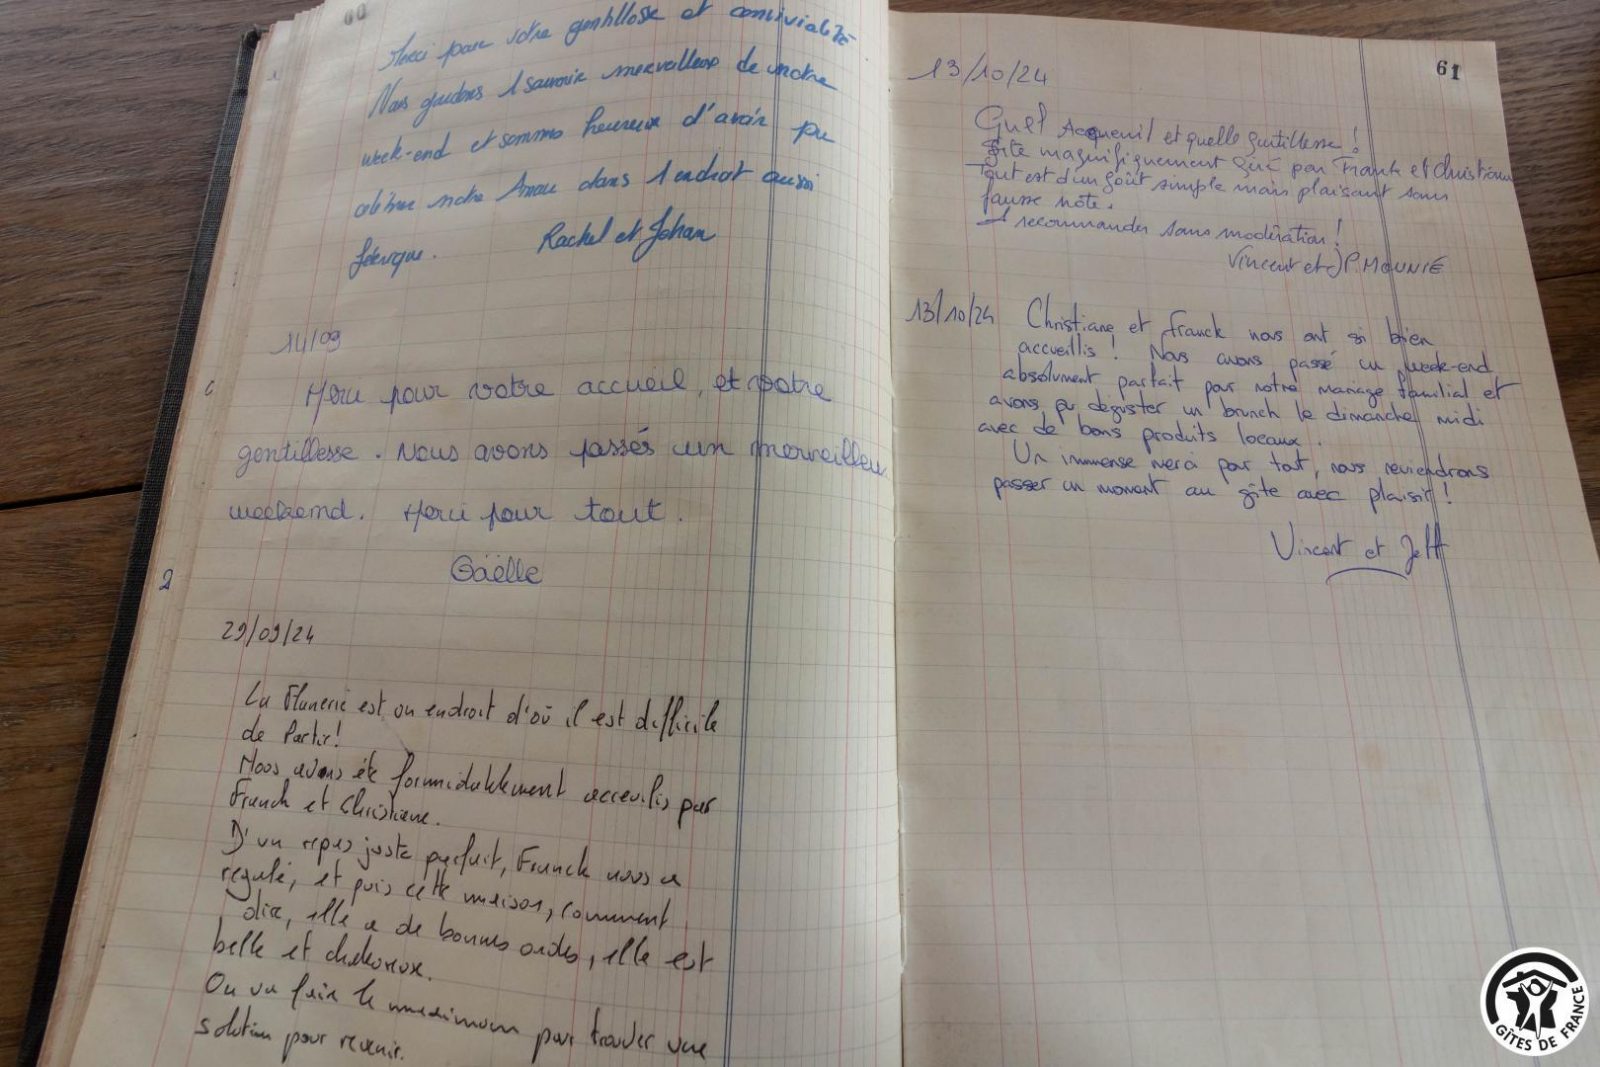 60
Merci pour votre gentillesse et convivialité
Nous gardons 1 souvenir merveilleux de notre
week-end et sommes heureux d'avoir pu
célébrer notre Amour dans 1 endroit aussi
féérique.
Rachel et Johan
14/09
Merci pour votre accueil, et votre
gentillesse. Nous avons passés un merveilleux
weekend. Merci pour tout.
Gaëlle
2
29/09/24
La Flanerie est un endroit d'où il est difficile
de Partir!
Nous avons été formidablement accueilis par
Franck et Christiane.
D'un repas juste parfait, Franck nous a
régalé, et puis cette maison, comment
dire, elle a de bonnes ondes, elle est
belle et chaleureux.
On va faire le maximum pour trouver une
solution pour revenir.
61
13/10/24
Quel Acqueuil et quelle gentillesse!
Gîte magnifiquement géré par Franck et Christiane
Tout est d'un goût simple mais plaisant sans
fausse note.
A recommander sans modération!
Vincent et JP. MOUNIE
13/10/24 Christiane et Franck nous ont si bien
accueillis! Nous avons passé un week-end
absolument parfait pour notre mariage familial et
avons pu déguster un brunch le dimanche midi
avec de bons produits locaux.
Un immense merci pour tout, nous reviendrons
passer un moment au gîte avec plaisir!
Vincent et Jeff
GÎTES DE FRANCE